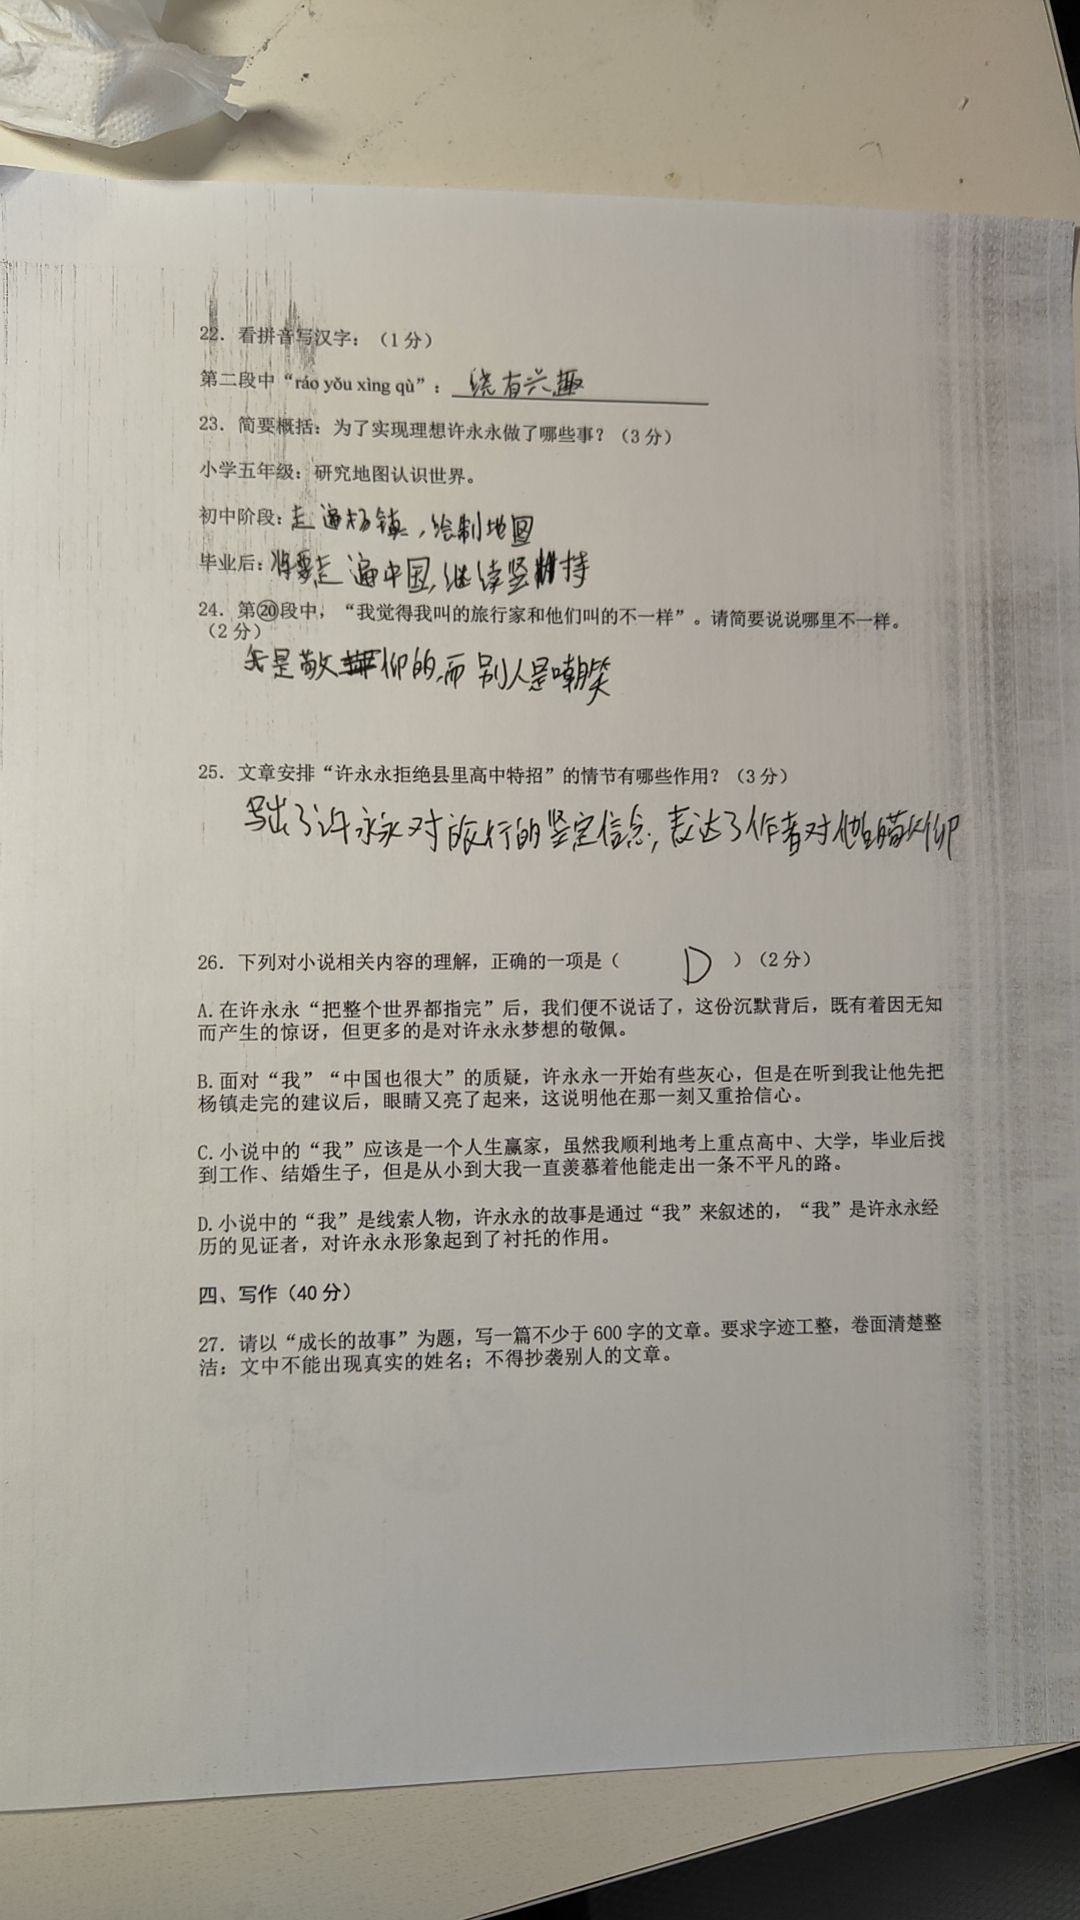 22. 看拼音写汉字：（1分）
第二段中“ráo yǒu xìng qù”：绕有兴趣
23. 简要概括：为了实现理想许永永做了哪些事？（3分）
小学五年级：研究地图认识世界。
初中阶段：走遍杨镇，绘制地图
毕业后：将要走遍中国，继续坚持
24. 第⑳段中，“我觉得我叫的旅行家和他们叫的不一样”。请简要说说哪里不一样。
（2分）
是敬仰的，而别人是嘲笑
25. 文章安排“许永永拒绝县里高中特招”的情节有哪些作用？（3分）
写出了许永永对旅行的坚定信念，表达了作者对他的敬仰
26. 下列对小说相关内容的理解，正确的一项是（ D ）（2分）
A. 在许永永“把整个世界都指完”后，我们便不说话了，这份沉默背后，既有着因无知
而产生的惊讶，但更多的是对许永永梦想的敬佩。
B. 面对“我”“中国也很大”的质疑，许永永一开始有些灰心，但是在听到我让他先把
杨镇走完的建议后，眼睛又亮了起来，这说明他在那一刻又重拾信心。
C. 小说中的“我”应该是一个人生赢家，虽然我顺利地考上重点高中、大学，毕业后找
到工作、结婚生子，但是从小到大我一直羡慕着他能走出一条不平凡的路。
D. 小说中的“我”是线索人物，许永永的故事是通过“我”来叙述的，“我”是许永永经
历的见证者，对许永永形象起到了衬托的作用。
四、写作（40分）
27. 请以“成长的故事”为题，写一篇不少于600字的文章。要求字迹工整，卷面清楚整
洁；文中不能出现真实的姓名；不得抄袭别人的文章。